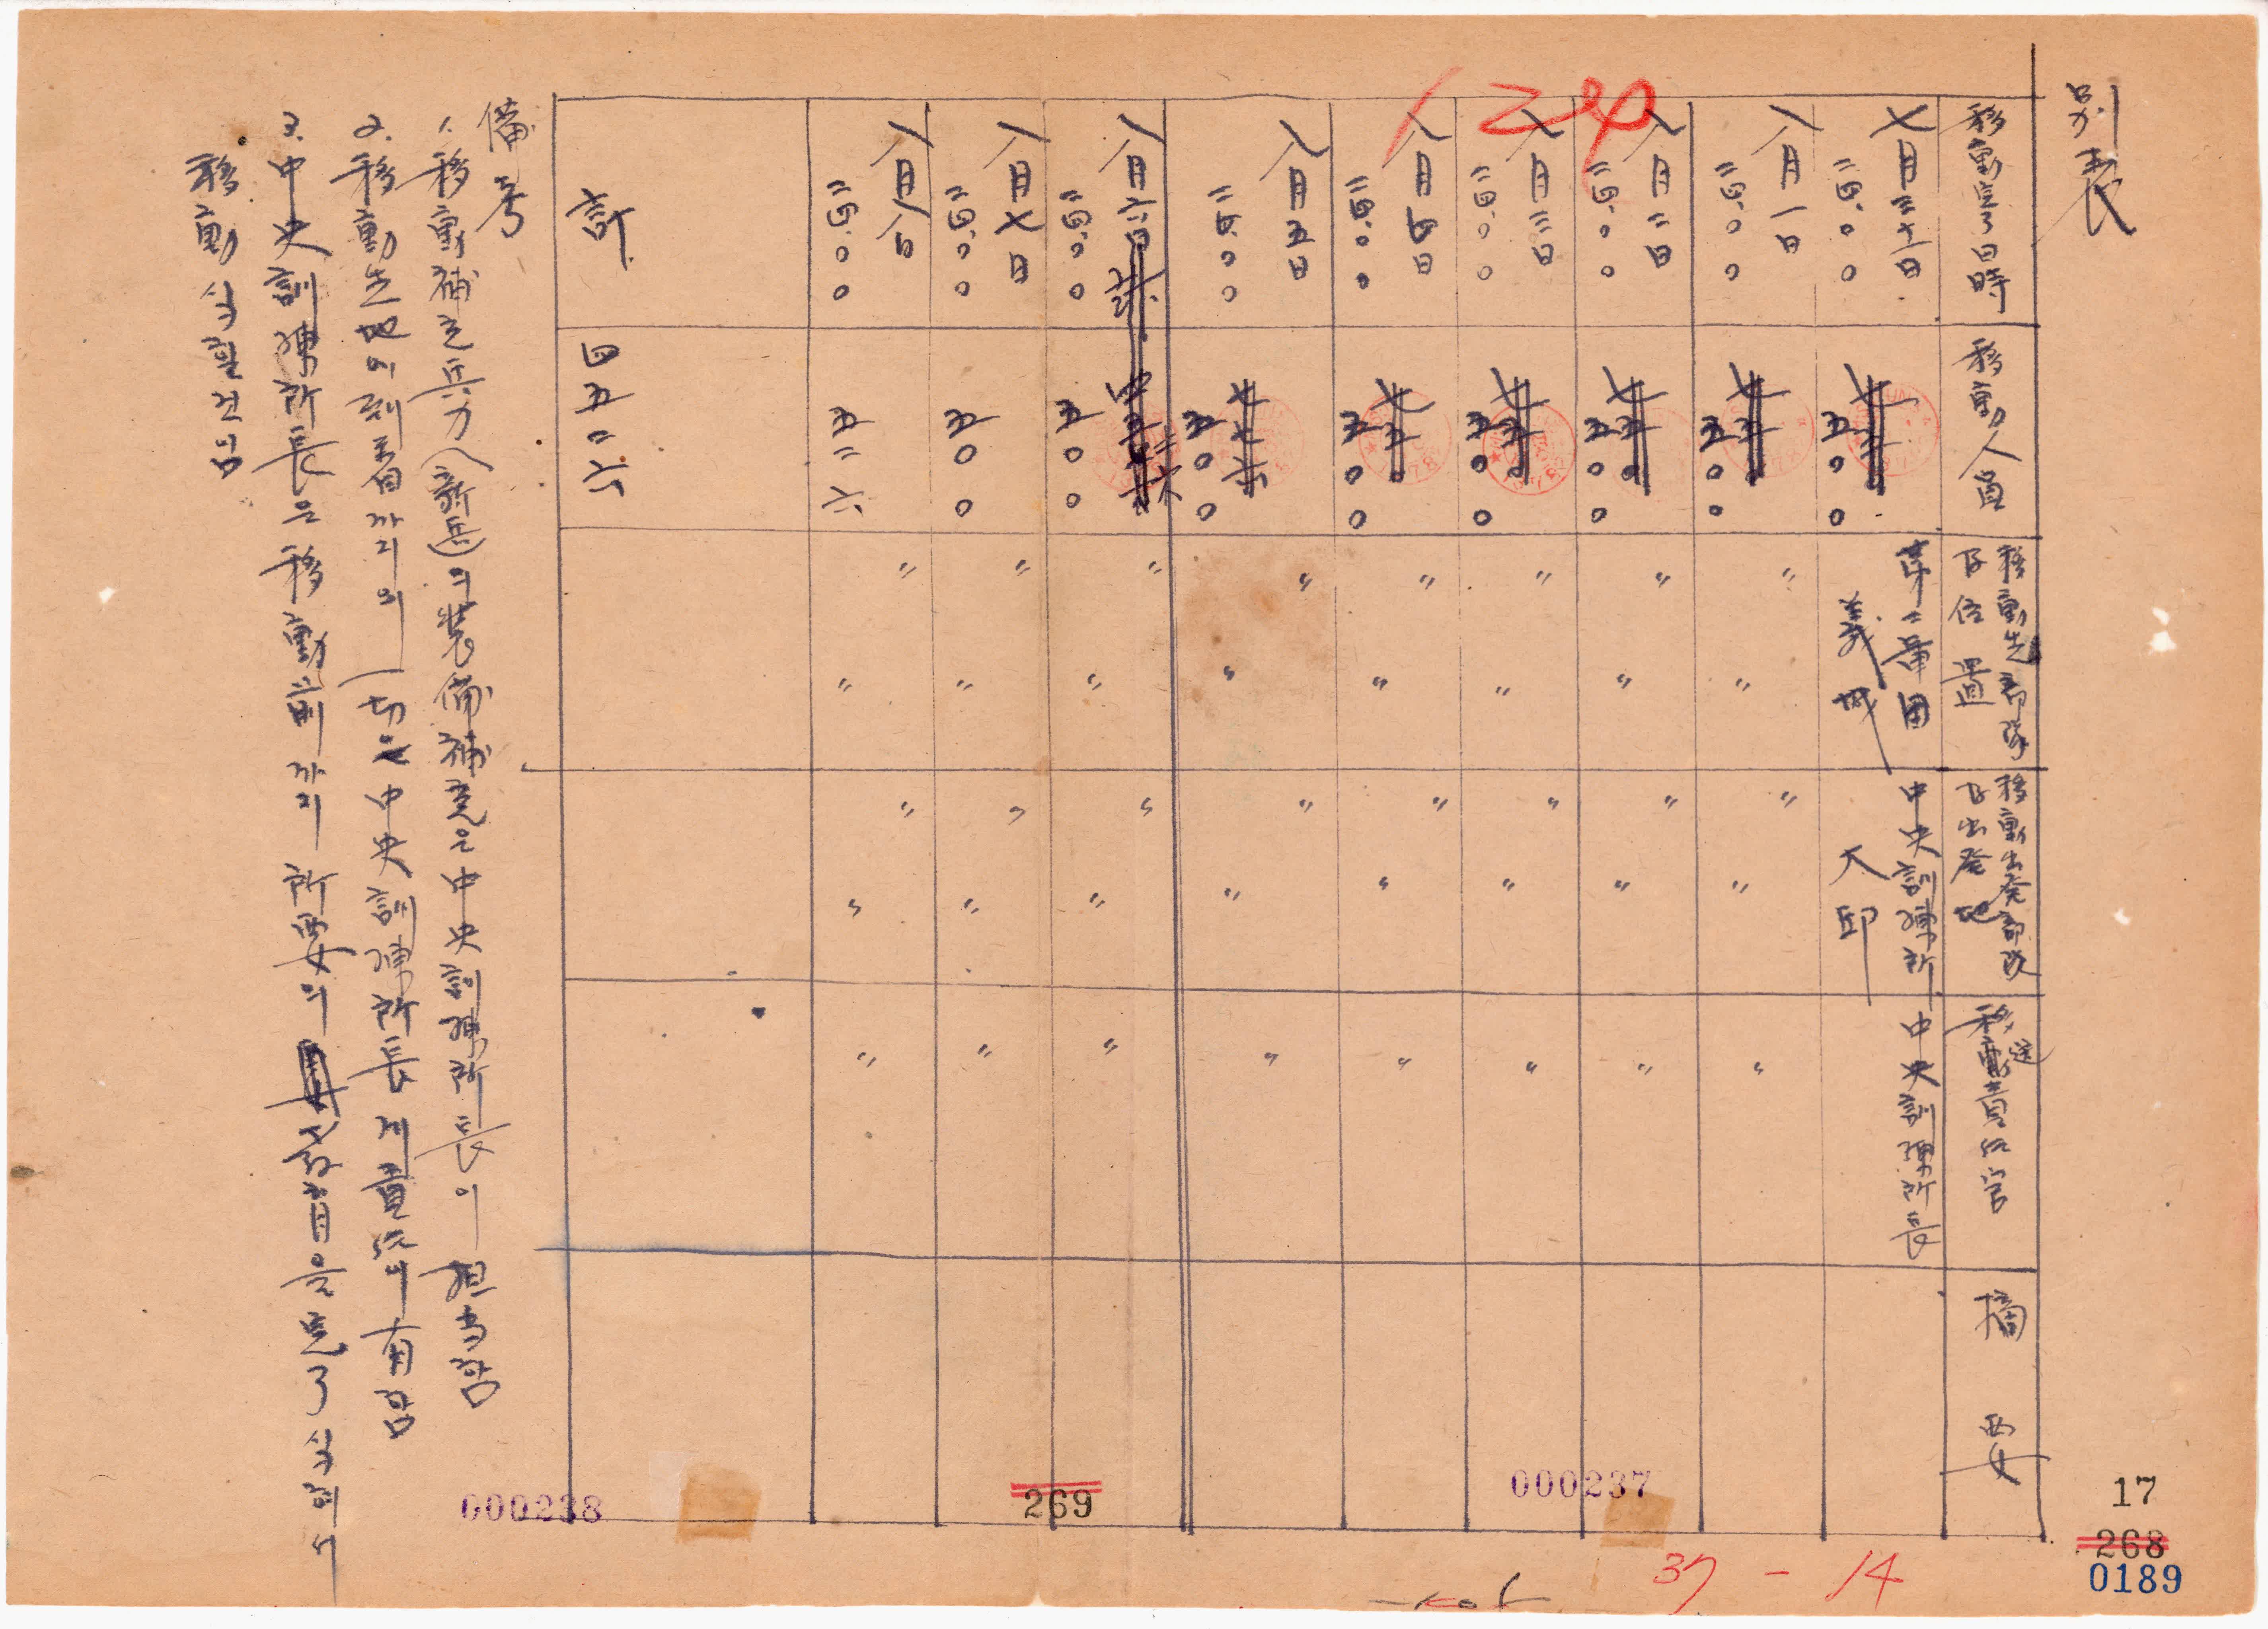 別表
移動完了日時
移動人員
移動先部隊
及位置
移動出発部隊
及出発地
移動責任官
送
摘要
七月三十一日
二四.〇〇
五〇〇
第二軍団
義城
中央訓練所
大邱
中央訓練所長
八月一日
二四.〇〇
五〇〇
〃
〃
〃
〃
〃
八月二日
二四.〇〇
五〇〇
〃
〃
〃
〃
〃
八月三日
二四.〇〇
五〇〇
〃
〃
〃
〃
〃
八月四日
二四.〇〇
五〇〇
〃
〃
〃
〃
〃
八月五日
二四.〇〇
五〇〇
〃
〃
〃
〃
〃
八月六日
二四.〇〇
五〇〇
〃
〃
〃
〃
〃
八月七日
二四.〇〇
五〇〇
〃
〃
〃
〃
〃
八月八日
二四.〇〇
五二六
〃
〃
〃
〃
〃
計
四五二六
備考
1. 移動補充兵力(新兵)의 装備補充은 中央訓練所長이 担当함
2. 移動先地에 到着까지의 一切은 中央訓練所長게 責任이 有함
3. 中央訓練所長은 移動前까지 所要의 教育을 完了식혀서
移動식힐것임
000238
269
000237
17
268
0189
37-14